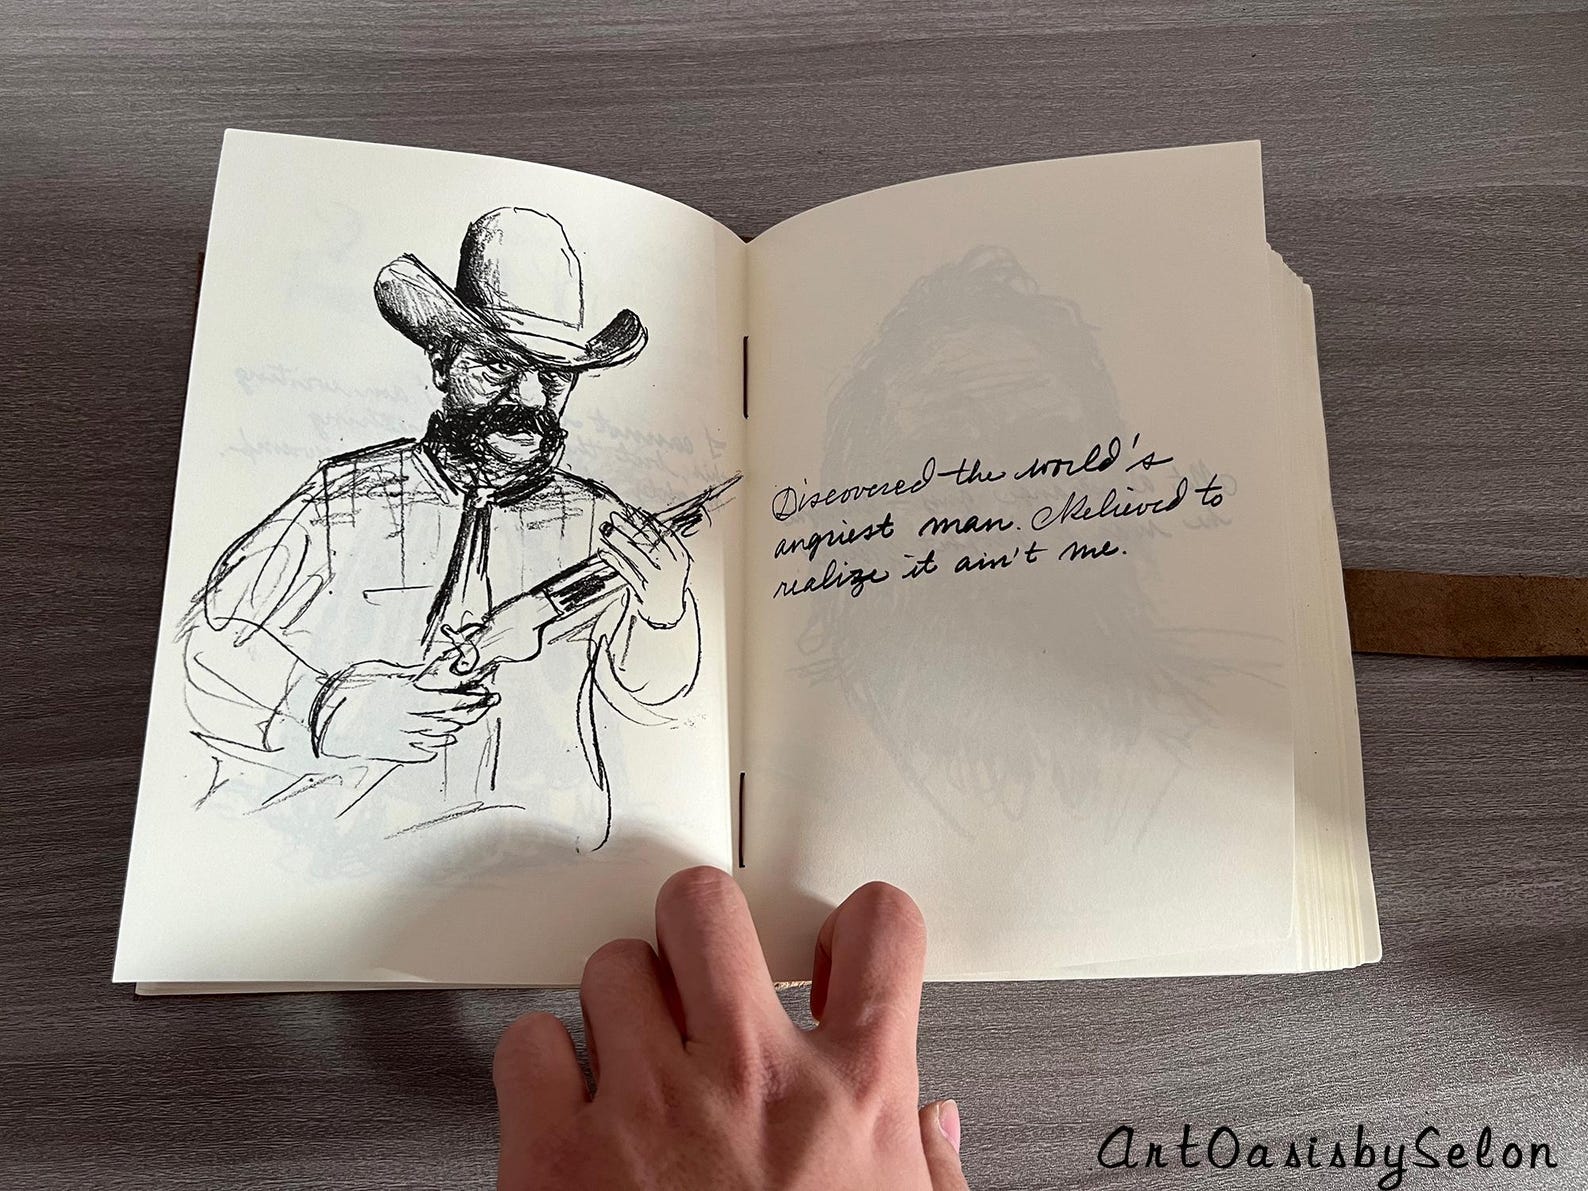 Discovered the world's
angriest man. Relieved to
realize it ain't me.
ArtOasisbySelon